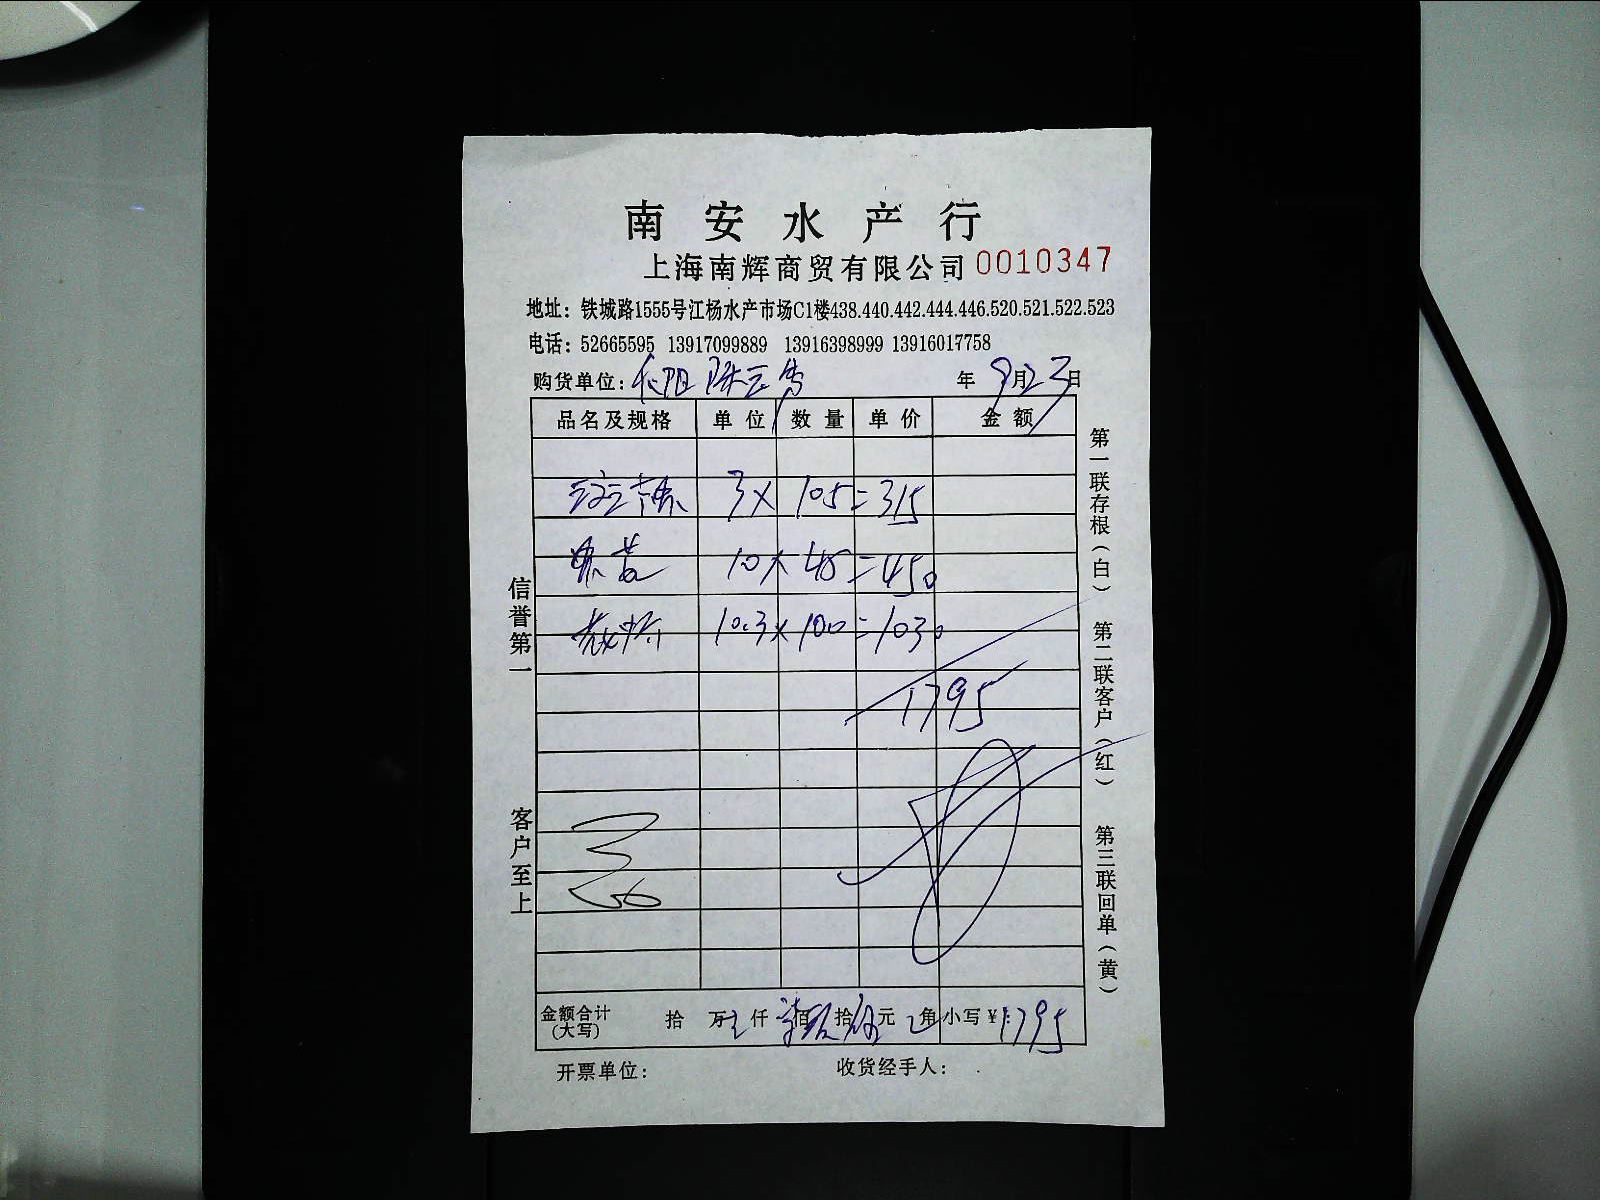 南安水产行
上海南辉商贸有限公司 0010347
地址：铁城路1555号江杨水产市场C1楼438.440.442.444.446.520.521.522.523
电话：52665595 13917099889 13916398999 13916017758
购货单位： 年9月23日
品名及规格 单位 数量 单价 金额
3× 105=315
10× 45=450
10.3× 100=1030
1795
金额合计(大写) 拾 万 仟 佰 拾 元 角 小写¥：1795
开票单位： 收货经手人：
信誉第一
客户至上
第一联存根（白）
第二联客户（红）
第三联回单（黄）